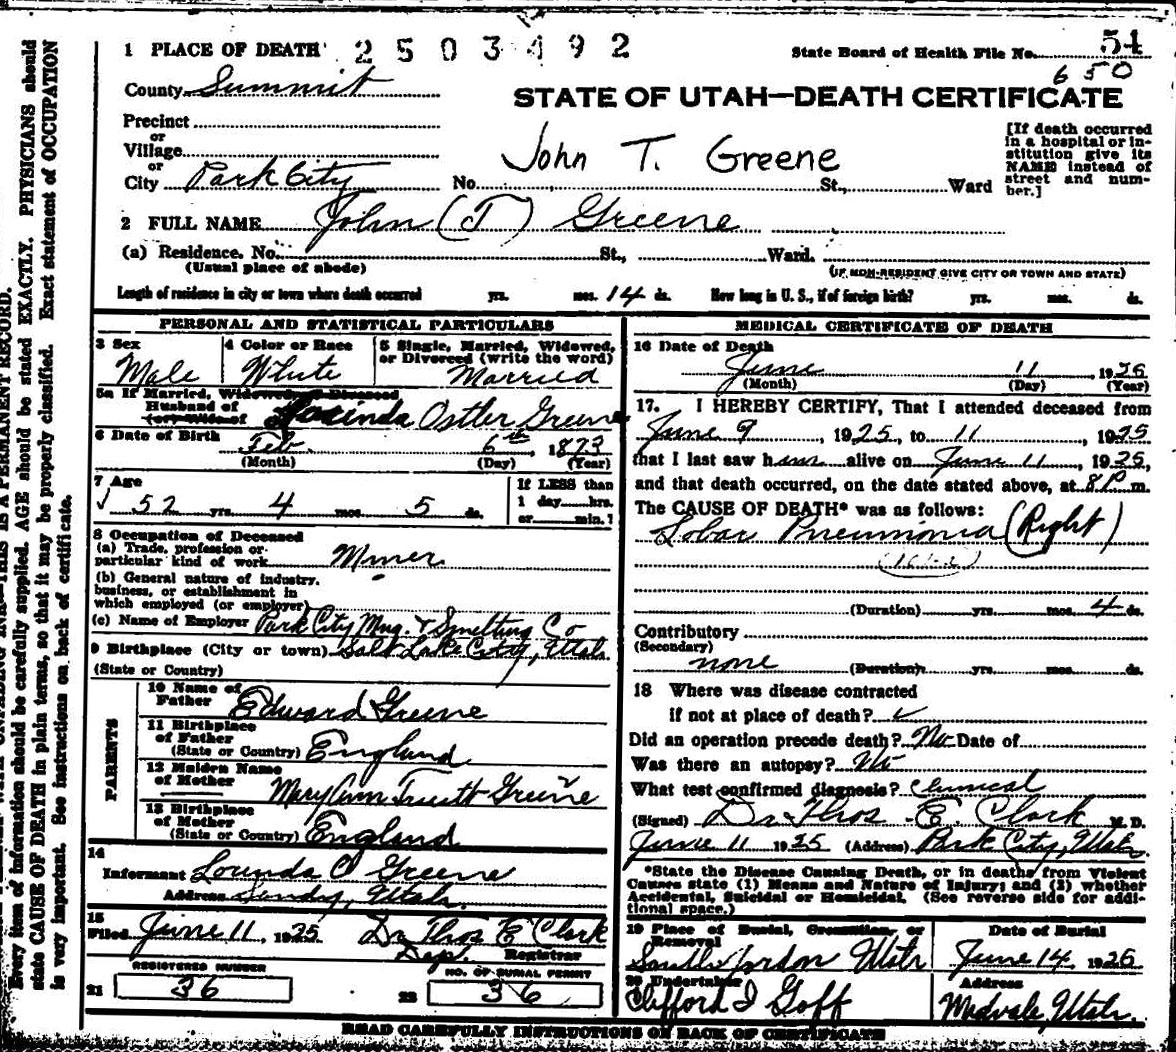 1 PLACE OF DEATH 2503492 State Board of Health File No. 54
650
County Summit
STATE OF UTAH—DEATH CERTIFICATE
Precinct
or
Village
or
City Park City No. St., Ward
John T. Greene
[If death occurred
in a hospital or in-
stitution give its
NAME instead of
street and num-
ber.]
2 FULL NAME John (T) Greene
(a) Residence. No. St., Ward.
(Usual place of abode) (IF NON-RESIDENT GIVE CITY OR TOWN AND STATE)
Length of residence in city or town where death occurred yrs. mos. 14 ds. How long in U. S., if of foreign birth? yrs. mos. ds.
PERSONAL AND STATISTICAL PARTICULARS
3 Sex 4 Color or Race 5 Single, Married, Widowed,
or Divorced (write the word)
Male White Married
5a If Married, Widowed, or Divorced
Husband of
(or) Wife of Ostler Greene
6 Date of Birth Feb. 6th, 1873
(Month) (Day) (Year)
7 Age If LESS than
1 day hrs.
or min.?
52 yrs. 4 mos. 5 ds.
8 Occupation of Deceased
(a) Trade, profession or
particular kind of work Miner
(b) General nature of industry,
business, or establishment in
which employed (or employer)
(c) Name of Employer Park City Mng. & Smelting Co
9 Birthplace (City or town) Salt Lake City, Utah
(State or Country)
PARENTS
10 Name of
Father Edward Greene
11 Birthplace
of Father
(State or Country) England
12 Maiden Name
of Mother Mary Ann Greene
13 Birthplace
of Mother
(State or Country) England
14
Informant Greene
Address Sandy, Utah.
15
Filed June 11, 1925 Dr Thos E Clark
Dep. Registrar
REGISTERED NUMBER NO. OF BURIAL PERMIT
21 36 22 36
MEDICAL CERTIFICATE OF DEATH
16 Date of Death
June 11 1925
(Month) (Day) (Year)
17. I HEREBY CERTIFY, That I attended deceased from
June 9, 1925, to 11, 1925
that I last saw him alive on June 11, 1925,
and that death occurred, on the date stated above, at 8 P m.
The CAUSE OF DEATH* was as follows:
Lobar Pneumonia (Right)
(Duration) yrs. mos. 4 ds.
Contributory
(Secondary)
none (Duration) yrs. mos. ds.
18 Where was disease contracted
if not at place of death?
Did an operation precede death? No Date of
Was there an autopsy? No
What test confirmed diagnosis? Clinical
(Signed) Dr Thos E. Clark M. D.
June 11 1925 (Address) Park City, Utah.
*State the Disease Causing Death, or in deaths from Violent
Causes state (1) Means and Nature of Injury; and (2) whether
Accidental, Suicidal or Homicidal. (See reverse side for addi-
tional space.)
19 Place of Burial, Cremation, or
Removal Date of Burial
South Jordan Utah June 14 1925
20 Undertaker Address
Clifford I Goff Midvale, Utah.
READ CAREFULLY INSTRUCTIONS ON BACK OF CERTIFICATE
THIS IS A PERMANENT RECORD.
Every item of information should be carefully supplied. AGE should be stated EXACTLY. PHYSICIANS should
state CAUSE OF DEATH in plain terms, so that it may be properly classified. Exact statement of OCCUPATION
is very important. See instructions on back of certificate.